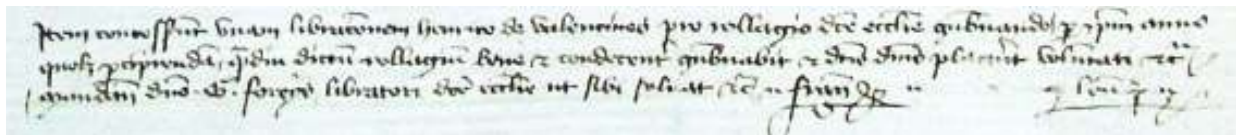 Item concesserunt unam libracionem henrico de valencines pro rellagio dicte ecclesie gubernando per ipsum annis
quolibet percipiendam quamdiu dictum rellagium bene et condecenter gubernabit et dictis dominis placuerit voluntati etc
mandantes domino G. forgeris libratori dicte ecclesie ut sibi solvat etc